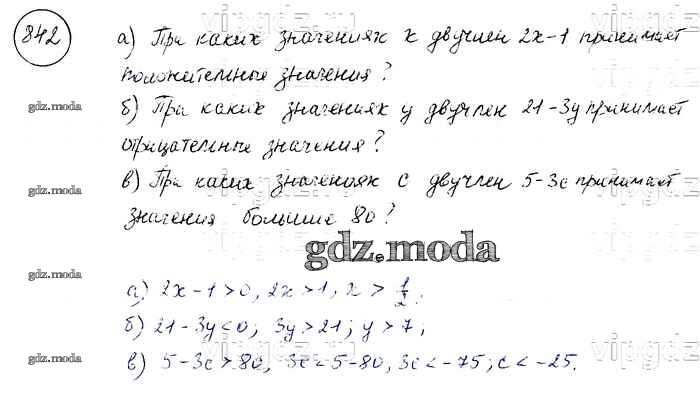 842
а) При каких значениях х двучлен 2х-1 принимает
положительные значения?
б) При каких значениях у двучлен 21-3у принимает
отрицательные значения?
в) При каких значениях с двучлен 5-3с принимает
значения больше 80?
gdz.moda
а) 2х-1>0, 2х>1, х > 1/2;
б) 21-3у<0; 3у>21; у>7;
в) 5-3с>80, 3с<5-80, 3с<-75; с<-25.
gdz.moda
gdz.moda
gdz.moda
gdz.moda
vipgdz
vipgdz
vipgdz
vipgdz